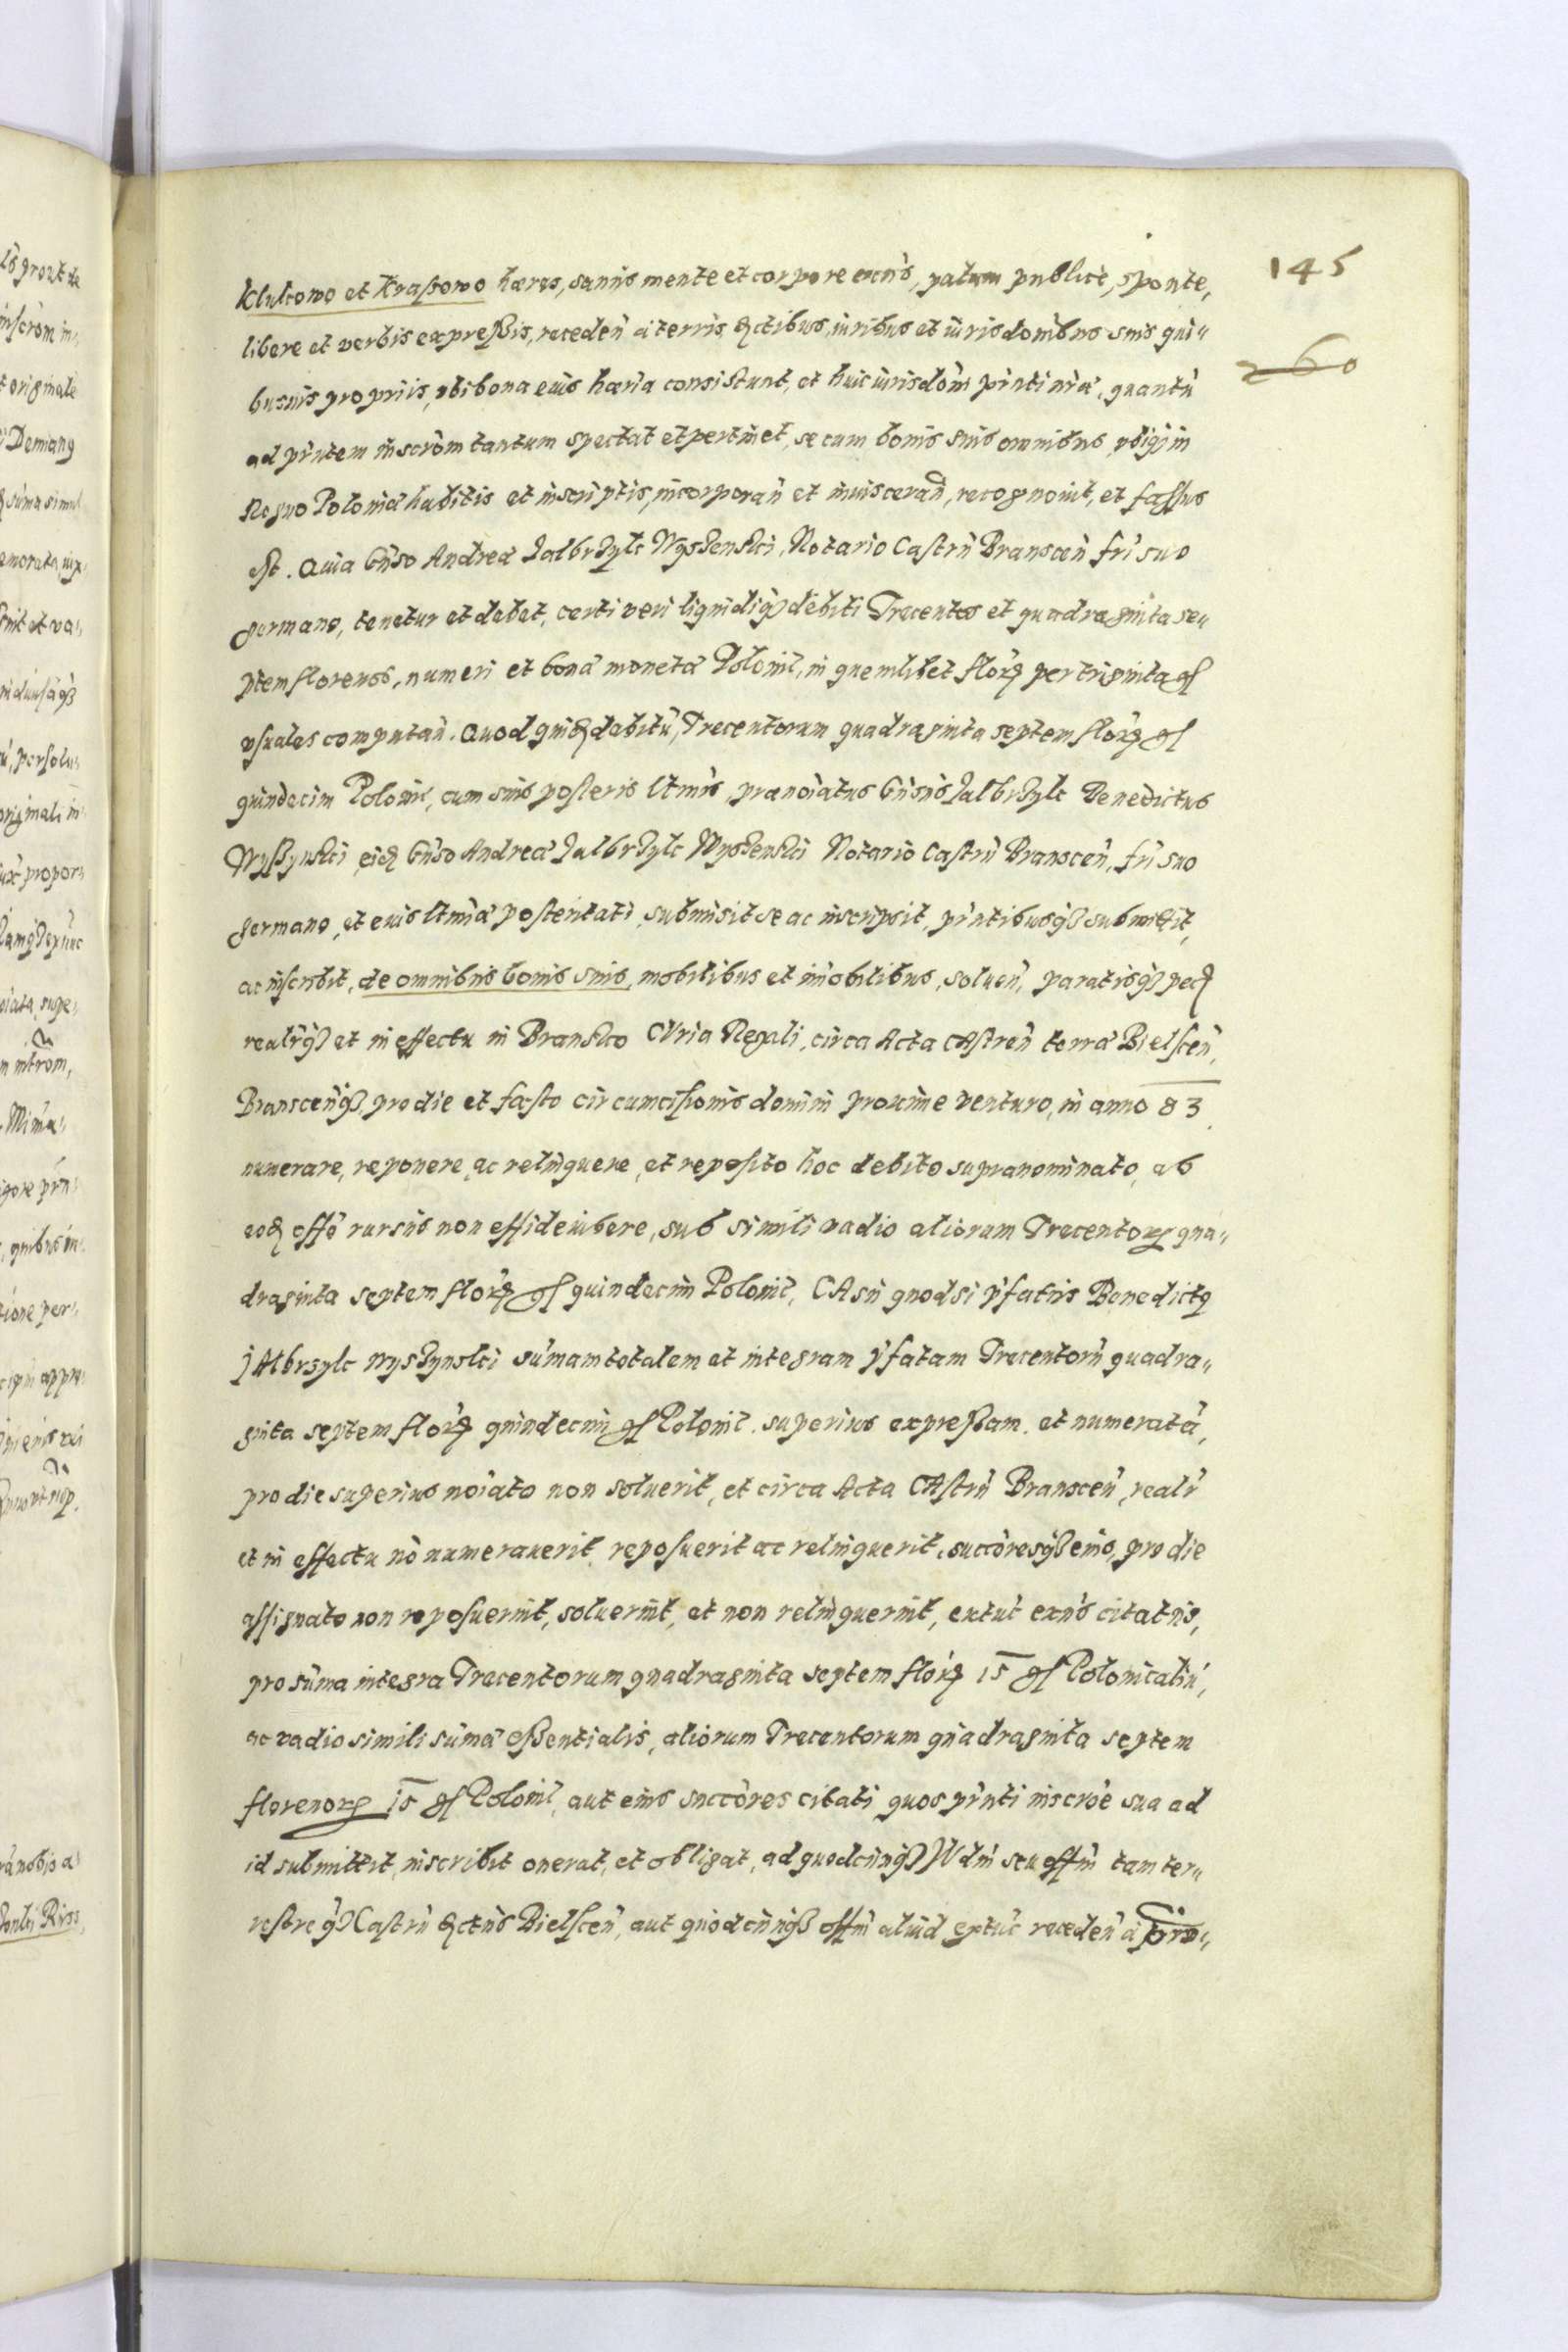 145
260
Klukowo et Krassowo hæres, sanus mente et corpore exñs, palam publicè, sponte,
libere et verbis expreßis, receden̄ a terris, dctibus, iuribus et iurisdōnibus suis qui„
busuis propriis, vbi bona eius hæria consistunt, et huic iurisdōni pñti nr̃æ, quantũ
ad pñtem inscrõm tantum spectat et pertinet, se cum bonis suis omnibus vbiq̃ in
Regno Poloniæ habitis et inscriptis, incorporañ et inuiscerañ, recognouit, et fassus
est. Quia Gñso Andreæ Jalbrzyk Wyszenski, Notario Castrñ Branscen̄ frī suo
germano, tenetur et debet, certi veri liquidiq̃ debiti Trecentos et quadraginta se„
ptem florenos, numeri et bonæ monetæ Polonil, in quemlibet flor̃ per triginta gſ
vsuales computañ. Quod quid debitũ, Trecentorum quadraginta septem flor̃ gſ
quindecim Polonil, cum suis posteris ltmis, prænoiatus Gñsus Jalbrzyk Benedictus
Wyßynski eid Gñso Andreæ Jalbrzyk Wyszenski Notario Castrñ Branscen̄, frī suo
germano, et eius ltmæ posteritati, submisit se ac inscripsit, pñtibusq̃ submittit,
ac inscribit, de omnibus bonis suis, mobilibus et imobilibus, soluen̄, paratisq̃ pec
realrq̃ et in effectu in Bransko CVria Regali, circa Acta CAstren̄ terræ Bielscen̄,
Branscen̄q̃ pro die et festo circumcisionis domini proxime venturo, in anno 83.
numerare, reponere, ac relinquere, et reposito hoc debito supranominato, ab
eod offõ rursus non effideiubere, sub simili vadio aliorum Trecentor̃ qua„
draginta septem flor̃ gſ quindecim Polonil, CAsũ quodsi pfatus Benedictq
JAlbrzyk Wyszynski sum̃am totalem et integram pfatam Trecentorũ quadra„
ginta septem flor̃ quindecim gſ Polonil. superius expreßam. et numeratã,
pro die superius noiato non soluerit, et circa Acta CAstrñ Branscen̄, realr
et in effectu nõ numerauerit, reposuerit ac relinquerit, succõresq̃ eius, pro die
assignato non reposuerint, soluerint, et non relinquerint, extut exñs citatus,
pro sum̃a integra Trecentorum quadraginta septem flor̃ 15 gſ Polonicaliũ,
ac vadio simili sum̃æ eßentialis, aliorum Trecentorum quadraginta septem
florenor̃ 15 gſ Polonil, aut eius succõres citati quos pñti inscrõe sua ad
id submittit, inscribit onerat, et obligat, ad quodcunq̃ Jvdm̃ seu offm̃ tam ter„
restre q̃ Castrñ dctus Bielscen̄, aut quodcunq̃ offm̃ aliud extuc receden̄ a pro„